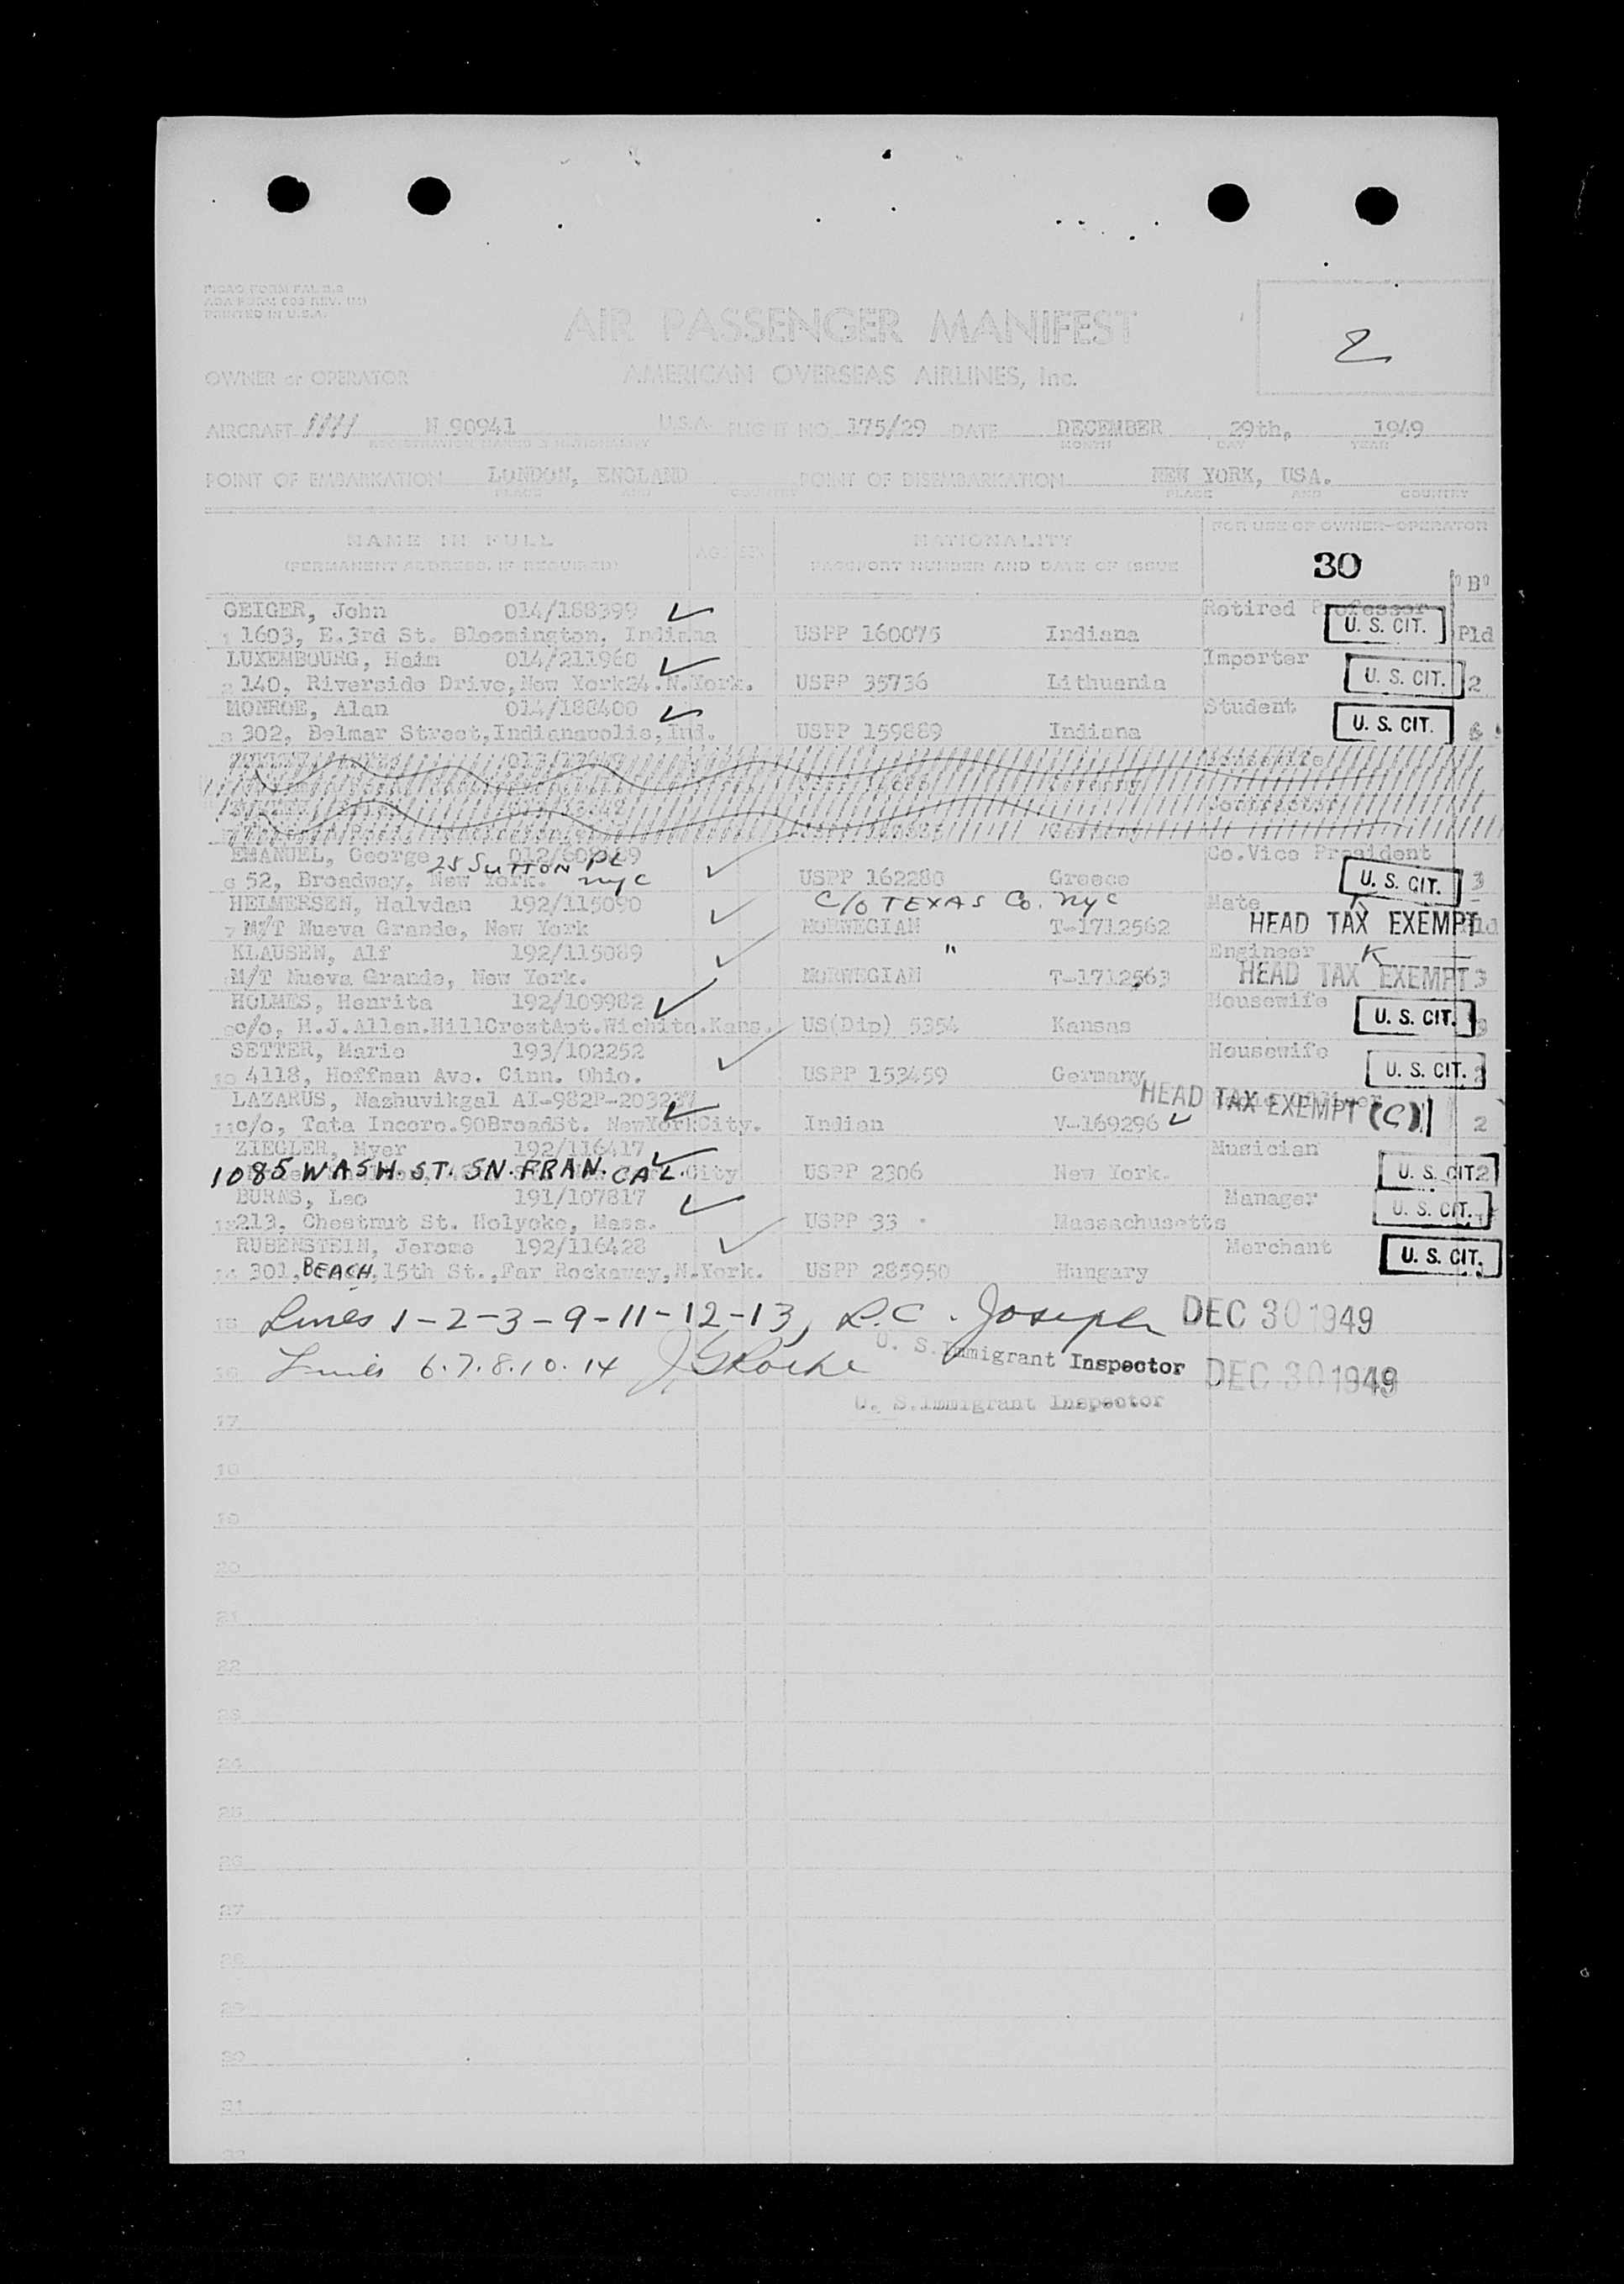 AIR PASSENGER MANIFEST
2
OWNER or OPERATOR AMERICAN OVERSEAS AIRLINES, Inc.
AIRCRAFT N 90941 U.S.A. FLIGHT NO. 175/29 DATE DECEMBER 29th, 1949
REGISTRATION MARKS & NATIONALITY MONTH DAY YEAR
POINT OF EMBARKATION LONDON, ENGLAND POINT OF DISEMBARKATION NEW YORK, USA.
PLACE AND COUNTRY PLACE AND COUNTRY
NAME IN FULL AGE SEX NATIONALITY FOR USE OF OWNER-OPERATOR
(PERMANENT ADDRESS, IF REQUIRED) PASSPORT NUMBER AND DATE OF ISSUE 30
"B"
GEIGER, John 014/188399 Retired Professor
1 1603, E.3rd St. Bloomington, Indiana USPP 160075 Indiana U. S. CIT. Pld
LUXEMBOURG, Haim 014/211960 Importer
2 140, Riverside Drive, New York24.N.York. USPP 35736 Lithuania U. S. CIT. 2
MONROE, Alan 014/188400 Student
3 302, Belmar Street, Indianapolis, Ind. USPP 159889 Indiana U. S. CIT.
Housewife
Contractor
EMANUEL, George Co.Vice President
25 SUTTON PL
6 52, Broadway, New York. NYC USPP 162280 Greece U. S. CIT. 3
HELMERSEN, Halvdan 192/115090 C/O TEXAS Co. NYC Mate
7 M/T Nueva Grande, New York NORWEGIAN T-1712562 HEAD TAX EXEMPT
KLAUSEN, Alf 192/115089 " Engineer K
M/T Nueva Grande, New York. NORWEGIAN T-1712563 HEAD TAX EXEMPT 3
HOLMES, Henrita 192/109982 Housewife
9 c/o, H.J.Allen.HillCrestApt.Wichita.Kans. US(Dip) 5354 Kansas U. S. CIT.
SETTER, Marie 193/102252 Housewife
10 4118, Hoffman Ave. Cinn. Ohio. USPP 153459 Germany U. S. CIT. 2
LAZARUS, Nazhuvikgal AI-982P-203237 HEAD TAX EXEMPT (C)
11 c/o, Tata Incorp.90BroadSt. NewYorkCity. Indian V-169296 2
ZIEGLER, Myer 192/116417 Musician
1085 WASH. ST. SN. FRAN. CAL. City USPP 2306 New York. U. S. CIT 2
BURNS, Leo 191/107817 Manager
13 213, Chestnut St. Holyoke, Mass. USPP 33 Massachusetts U. S. CIT.
RUBENSTEIN, Jerome 192/116428 Merchant
14 301, BEACH, 15th St., Far Rockaway, N.York. USPP 285950 Hungary U. S. CIT.
15 Lines 1-2-3-9-11-12-13, R.C. Joseph DEC 30 1949
U. S. Immigrant Inspector
16 Lines 6.7.8.10.14 DEC 30 1949
U. S. Immigrant Inspector
17
18
19
20
21
22
23
24
25
26
27
28
29
30
31